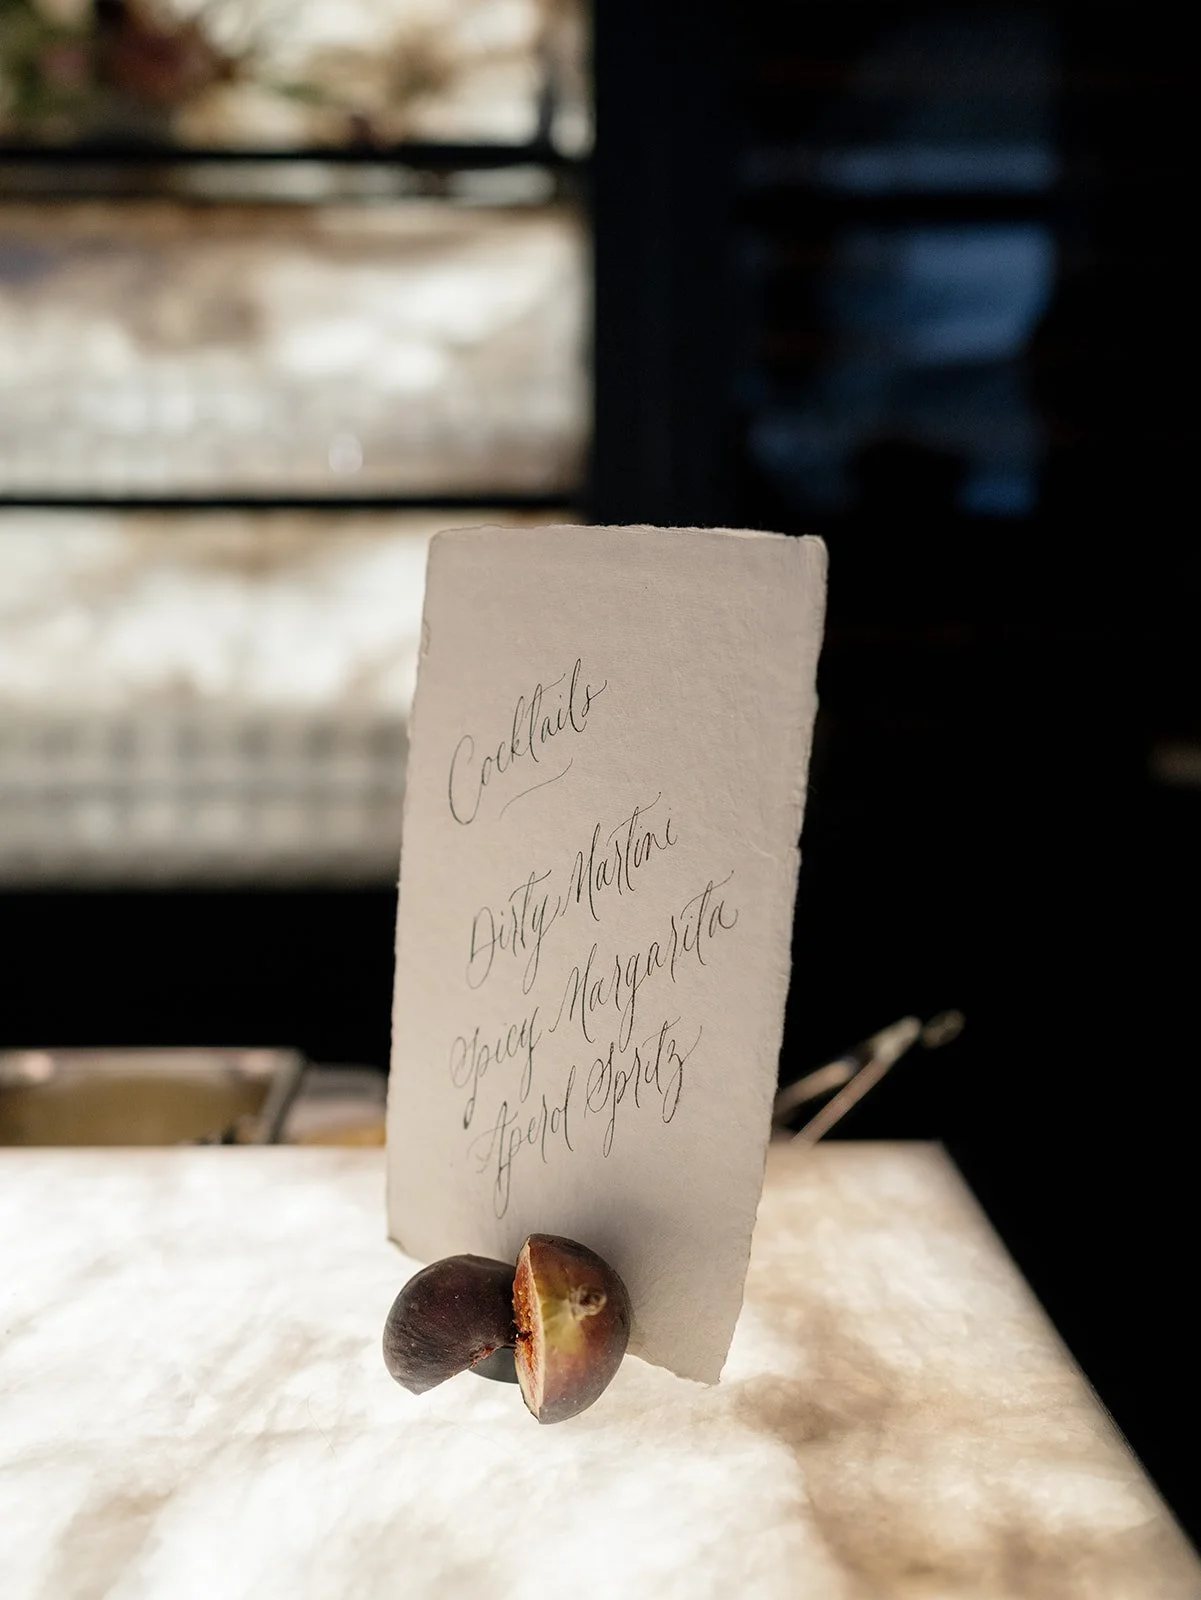 Cocktails
Dirty Martini
Spicy Margarita
Aperol Spritz